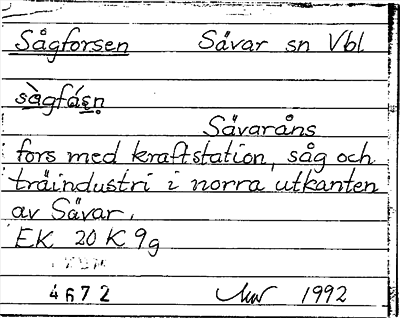 Sågforsen Sävar sn Vbl
sàgfáṣṇ
Sävaråns
fors med kraftstation, såg och
träindustri i norra utkanten
av Sävar.
EK 20 K 9g
4672 1992